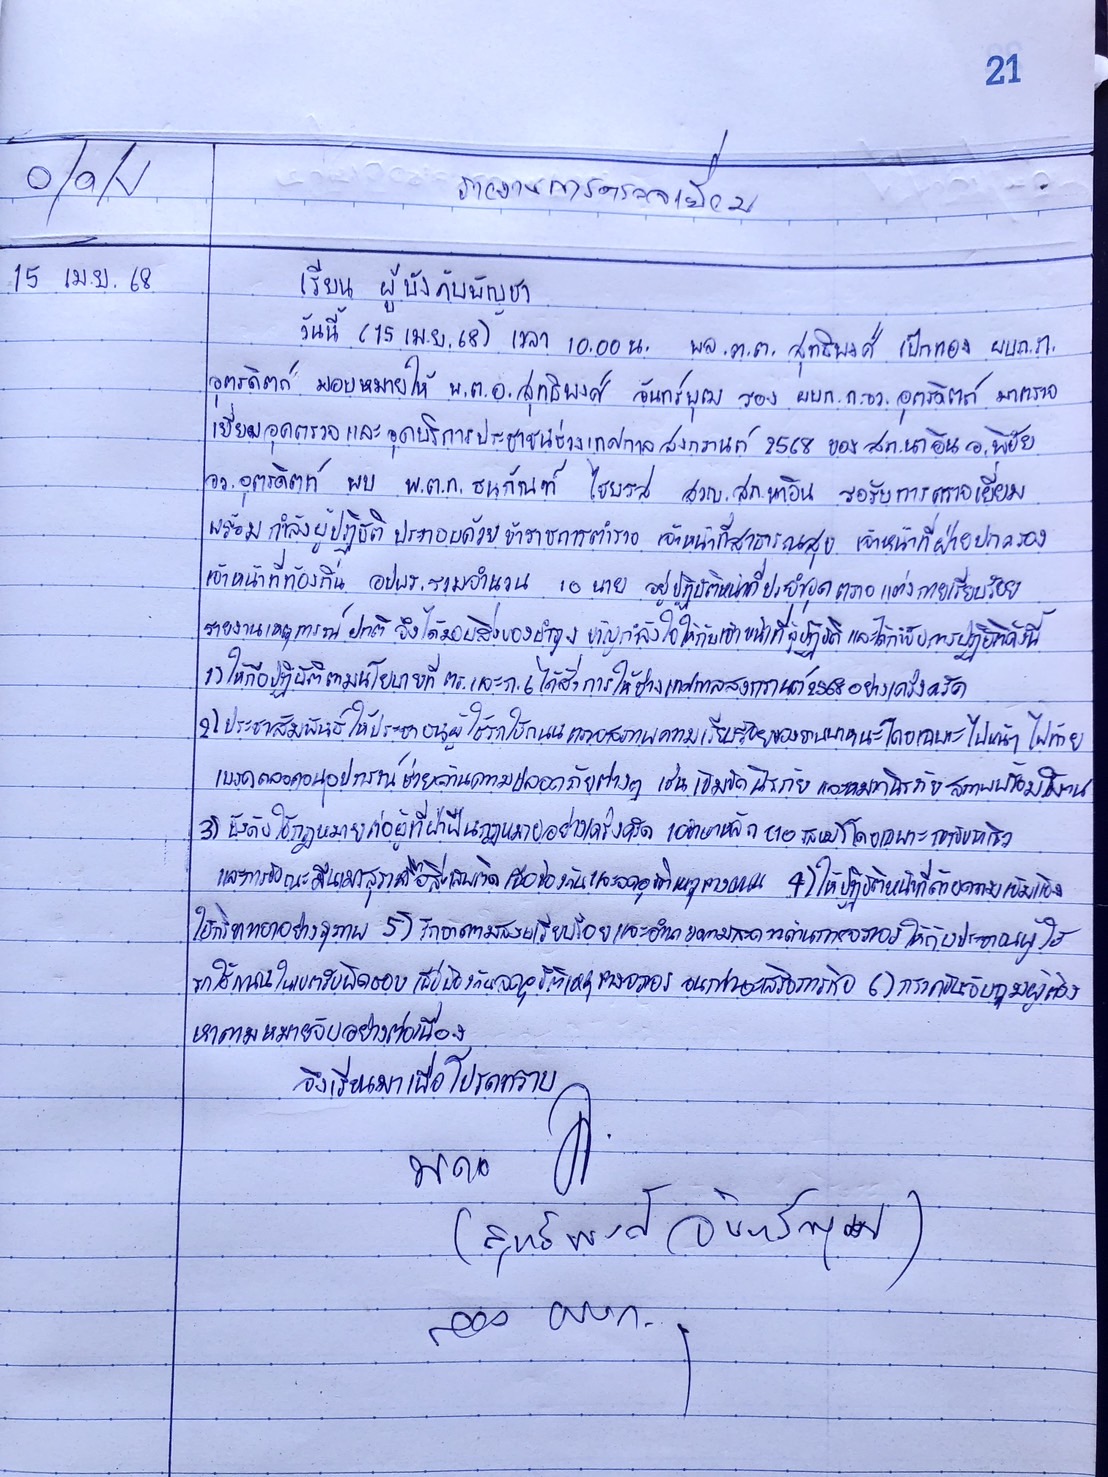 21
ว/ด/ป
รายงานการตรวจเยี่ยม
15 เม.ย. 68
เรียน ผู้บังคับบัญชา
วันนี้ (15 เม.ย. 68) เวลา 10.00 น. พล.ต.ต. สุทธิพงศ์ เป๊กทอง ผบก.ภ.
อุตรดิตถ์ มอบหมายให้ พ.ต.อ. สุทธิพงศ์ จันทร์พุฒ รอง ผบก.ภ.จว. อุตรดิตถ์ มาตรวจ
เยี่ยมจุดตรวจ และ จุดบริการประชาชนช่วงเทศกาลสงกรานต์ 2568 ของ สภ.นาอิน อ.พิชัย
จว.อุตรดิตถ์ พบ พ.ต.ท. ธนภัณฑ์ ไชยรส สวญ.สภ.นาอิน รอรับการตรวจเยี่ยม
พร้อม กำลังผู้ปฏิบัติ ประกอบด้วย ข้าราชการตำรวจ เจ้าหน้าที่สาธารณสุข เจ้าหน้าที่ฝ่ายปกครอง
เจ้าหน้าที่ท้องถิ่น อปพร. รวมจำนวน 10 นาย อยู่ปฏิบัติหน้าที่ประจำจุดตรวจ แต่งกายเรียบร้อย
รายงานเหตุการณ์ ปกติ จึงได้มอบสิ่งของบำรุง ขวัญกำลังใจให้กับเจ้าหน้าที่ผู้ปฏิบัติ และได้กำชับการปฏิบัติดังนี้
1) ให้ถือปฏิบัติตามนโยบายที่ ตร. และ ภ.6 ได้สั่งการให้ช่วงเทศกาลสงกรานต์ 2568 อย่างเคร่งครัด
2) ประชาสัมพันธ์ให้ประชาชนผู้ใช้รถใช้ถนน ตรวจสภาพความเรียบร้อยของยานพาหนะโดยเฉพาะไฟหน้า ไฟท้าย
เบรคตลอดจนอุปกรณ์ช่วยด้านความปลอดภัยต่างๆ เช่น เข็มขัดนิรภัย และหมวกนิรภัย สภาพพร้อมใช้งาน
3) บังคับใช้กฎหมายต่อผู้ที่ฝ่าฝืนกฎหมายอย่างเคร่งครัด 10 ข้อหาหลัก 10 รสขม โดยเฉพาะ
และการขับขณะมึนเมาสุรา เพื่อป้องกันและลดอุบัติเหตุทางถนน 4) ให้ปฏิบัติหน้าที่ด้วยความเข้มแข็ง
ใช้กริยาวาจาอย่างสุภาพ 5) รักษาความสงบเรียบร้อย และอำนวยความสะดวกด้านการจราจร ให้กับประชาชนผู้ใช้
รถใช้ถนนในเขตรับผิดชอบ เพื่อป้องกันลดอุบัติเหตุทางจราจร จนกว่าจะเสร็จภารกิจ 6) กวดขันจับกุมผู้ต้อง
หาตามหมายจับอย่างต่อเนื่อง
จึงเรียนมาเพื่อโปรดทราบ
พ.ต.อ.
(สุทธิพงศ์ จันทร์พุฒ)
รอง ผบก.